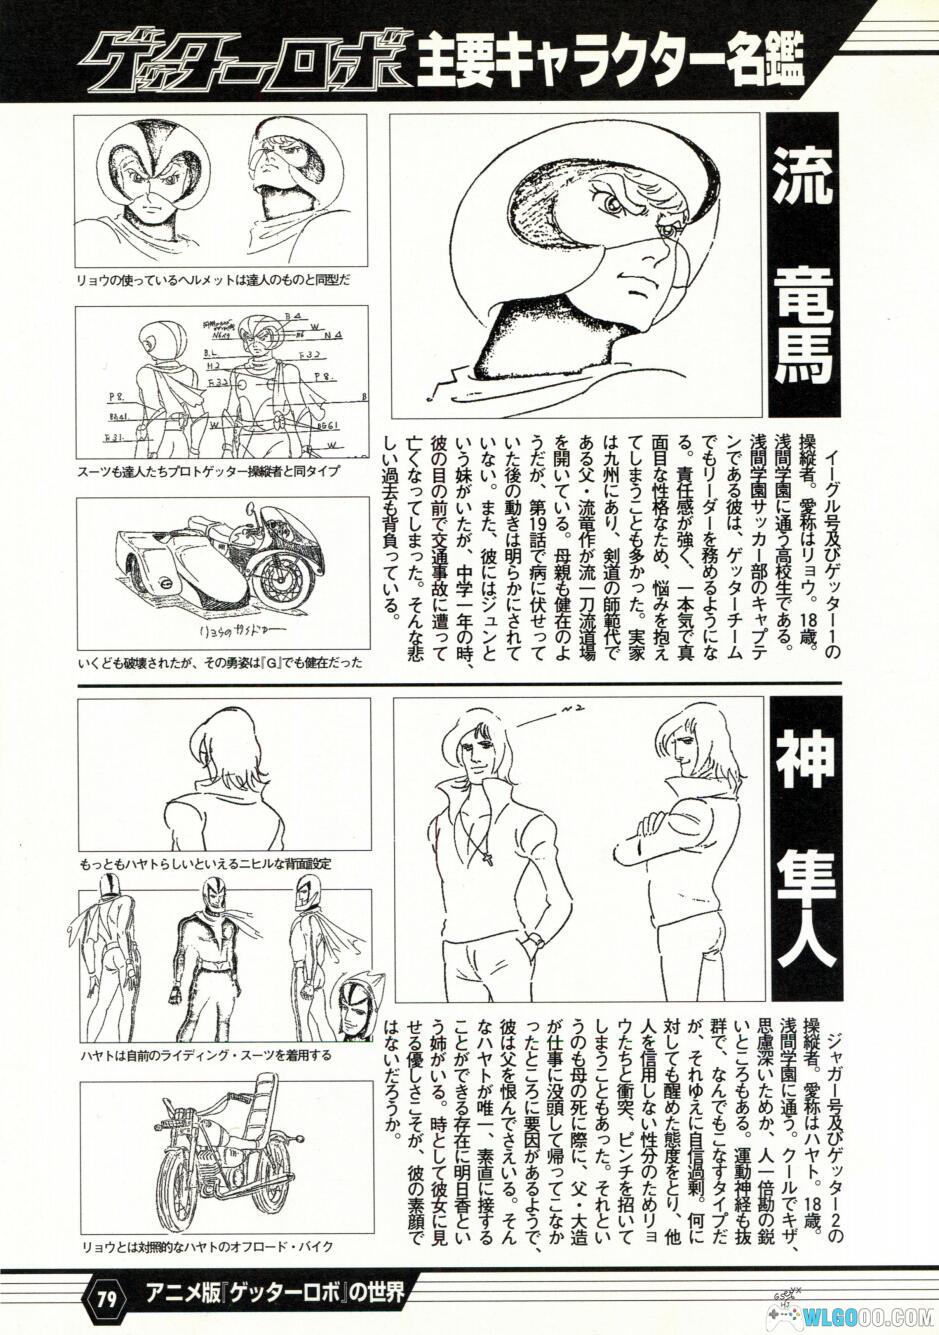 ゲッターロボ主要キャラクター名鑑
流 竜馬
イーグル号及びゲッター1の
操縦者。愛称はリョウ。18歳。
浅間学園に通う高校生である。
浅間学園サッカー部のキャプテ
ンである彼は、ゲッターチーム
でもリーダーを務めるようにな
る。責任感が強く、一本気で真
面目な性格なため、悩みを抱え
てしまうことも多かった。実家
は九州にあり、剣道の師範代で
ある父・流竜作が流一刀流道場
を開いている。母親も健在のよ
うだが、第19話で病に伏せって
いた後の動きは明らかにされて
いない。また、彼にはジュンと
いう妹がいたが、中学一年の時、
彼の目の前で交通事故に遭って
亡くなってしまった。そんな悲
しい過去も背負っている。
リョウの使っているヘルメットは達人のものと同型だ
B4
W
N4
B.L
H2
F.32
F.32
P8.
P8.
B
W
F31.
W
スーツも達人たちプロトゲッター操縦者と同タイプ
リョウのサイドカー
いくども破壊されたが、その勇姿は『G』でも健在だった
神 隼人
ジャガー号及びゲッター2の
操縦者。愛称はハヤト。18歳。
浅間学園に通う。クールでキザ、
思慮深いためか、人一倍勘の鋭
いところもある。運動神経も抜
群で、なんでもこなすタイプだ
が、それゆえに自信過剰。何に
対しても醒めた態度をとり、他
人を信用しない性分のためリョ
ウたちと衝突、ピンチを招いて
しまうこともあった。それとい
うのも母の死に際に、父・大造
が仕事に没頭して帰ってこなか
ったところに要因があるようで、
彼は父を恨んでさえいる。そん
なハヤトが唯一、素直に接する
ことができる存在に明日香とい
う姉がいる。時として彼女に見
せる優しさこそが、彼の素顔で
はないだろうか。
N2
もっともハヤトらしいといえるニヒルな背面設定
ハヤトは自前のライディング・スーツを着用する
リョウとは対照的なハヤトのオフロード・バイク
79
アニメ版『ゲッターロボ』の世界
WLGOOO.COM